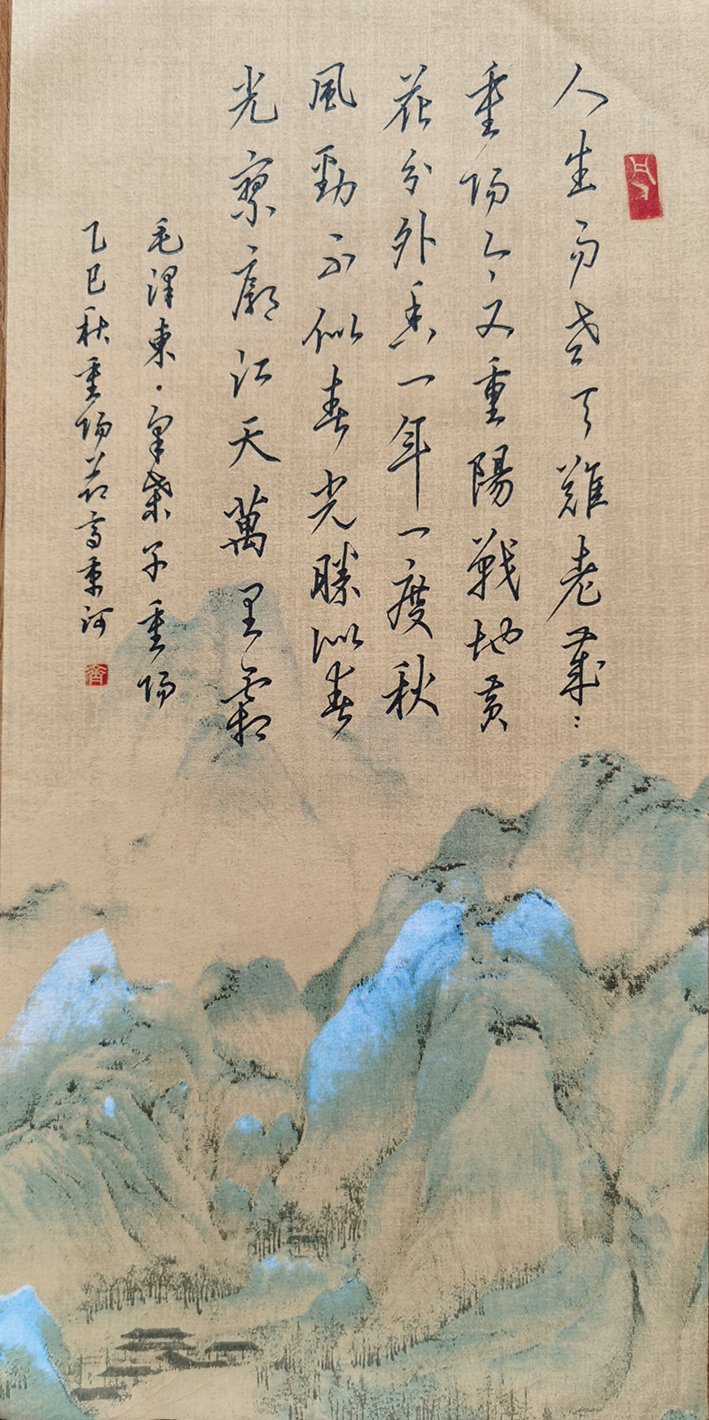 人生易老天難老歲〻
重阳今又重陽戰地黄
花分外香一年一度秋
風勁不似春光勝似春
光寥廓江天萬里霜
毛澤東·采桑子重阳
乙巳秋重阳